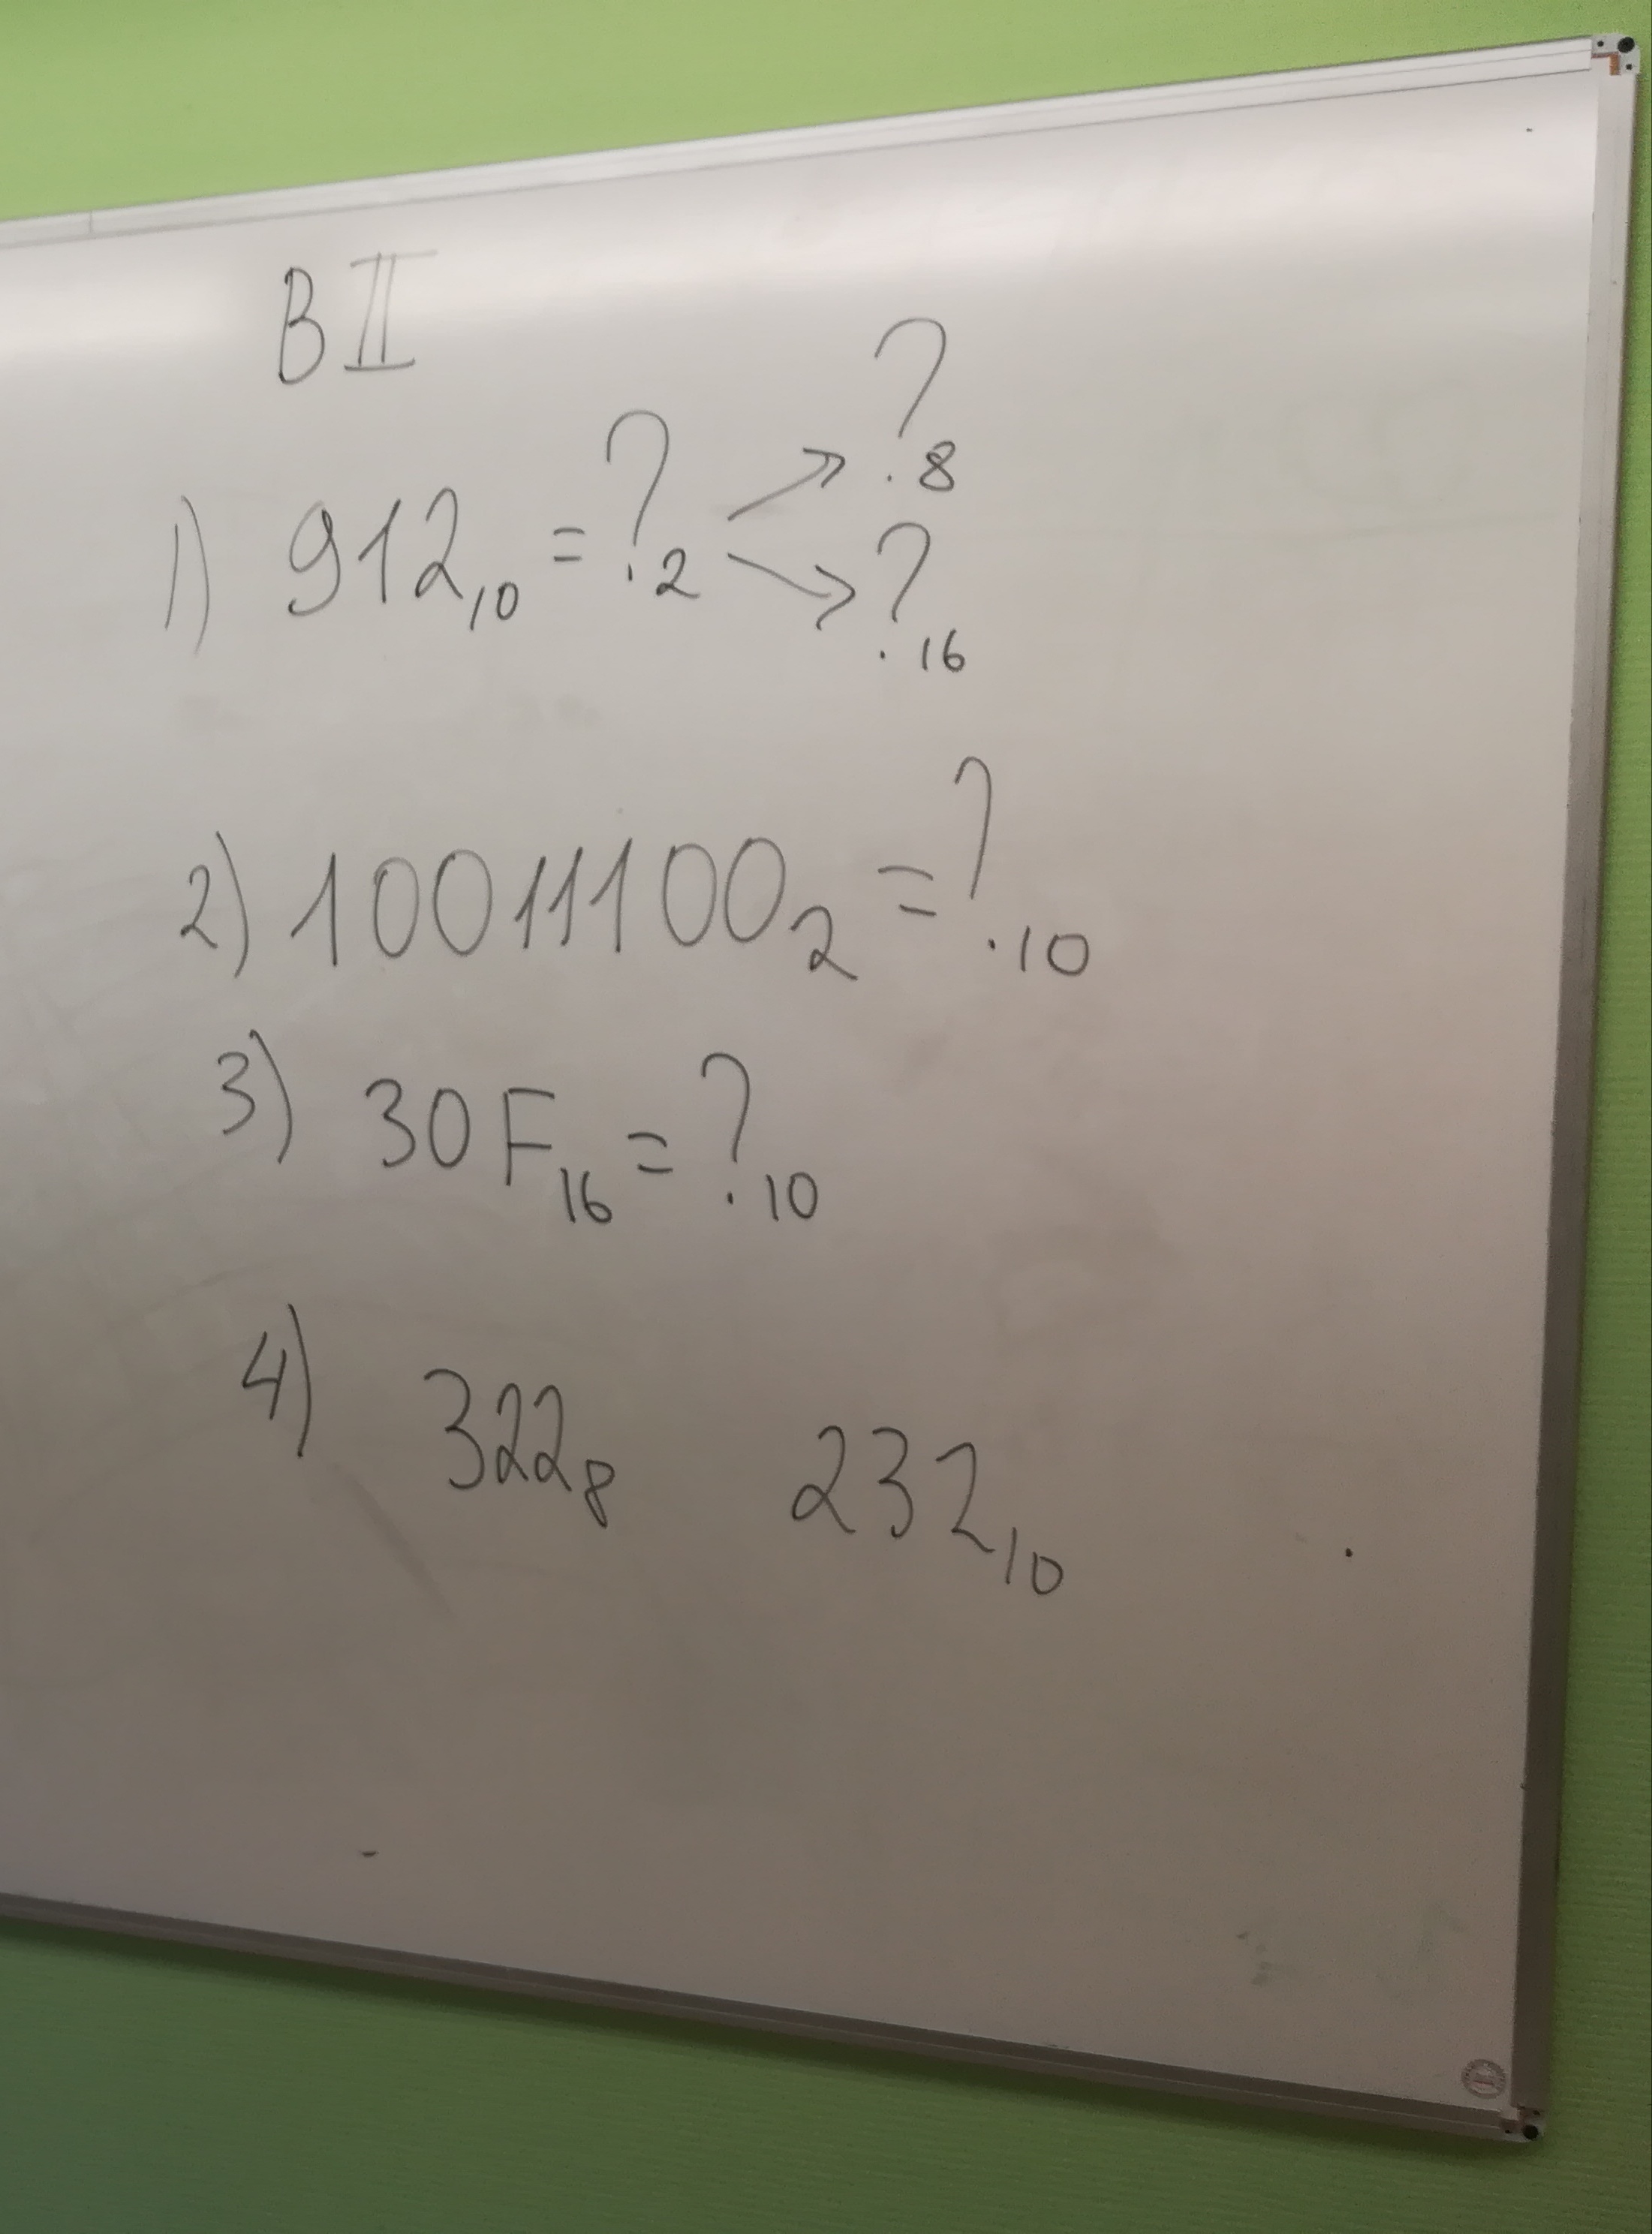 В II
1) 912₁₀ = ?₂ → ?₈
→ ?₁₆
2) 10011100₂ = ?₁₀
3) 30F₁₆ = ?₁₀
4) 322₈ 232₁₀